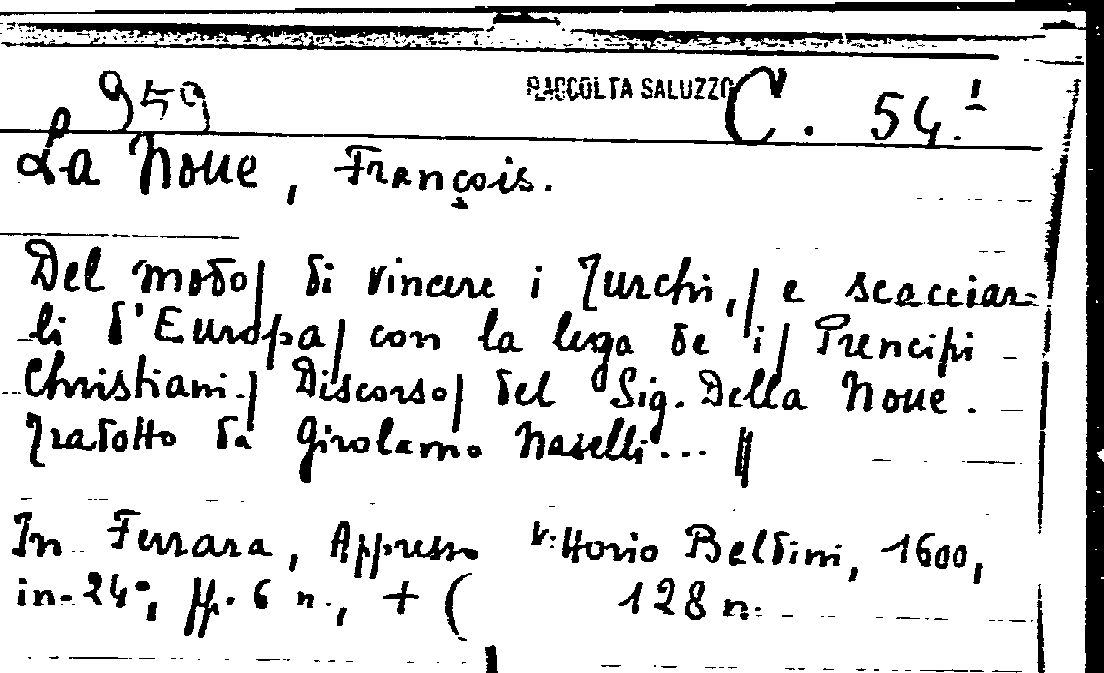 959 RACCOLTA SALUZZO C. 54.1
La Noue, François.
Del modo| di vincere i Turchi,| e scacciar-
li d'Europa| con la lega de'i| Prencipi
Christiani.| Discorso| del Sig. Della Noue.
Tradotto da Girolamo Naselli... ||
In Ferrara, Appresso Vittorio Baldini, 1600,
in-24°, pp. 6 n., + ( 128 n.